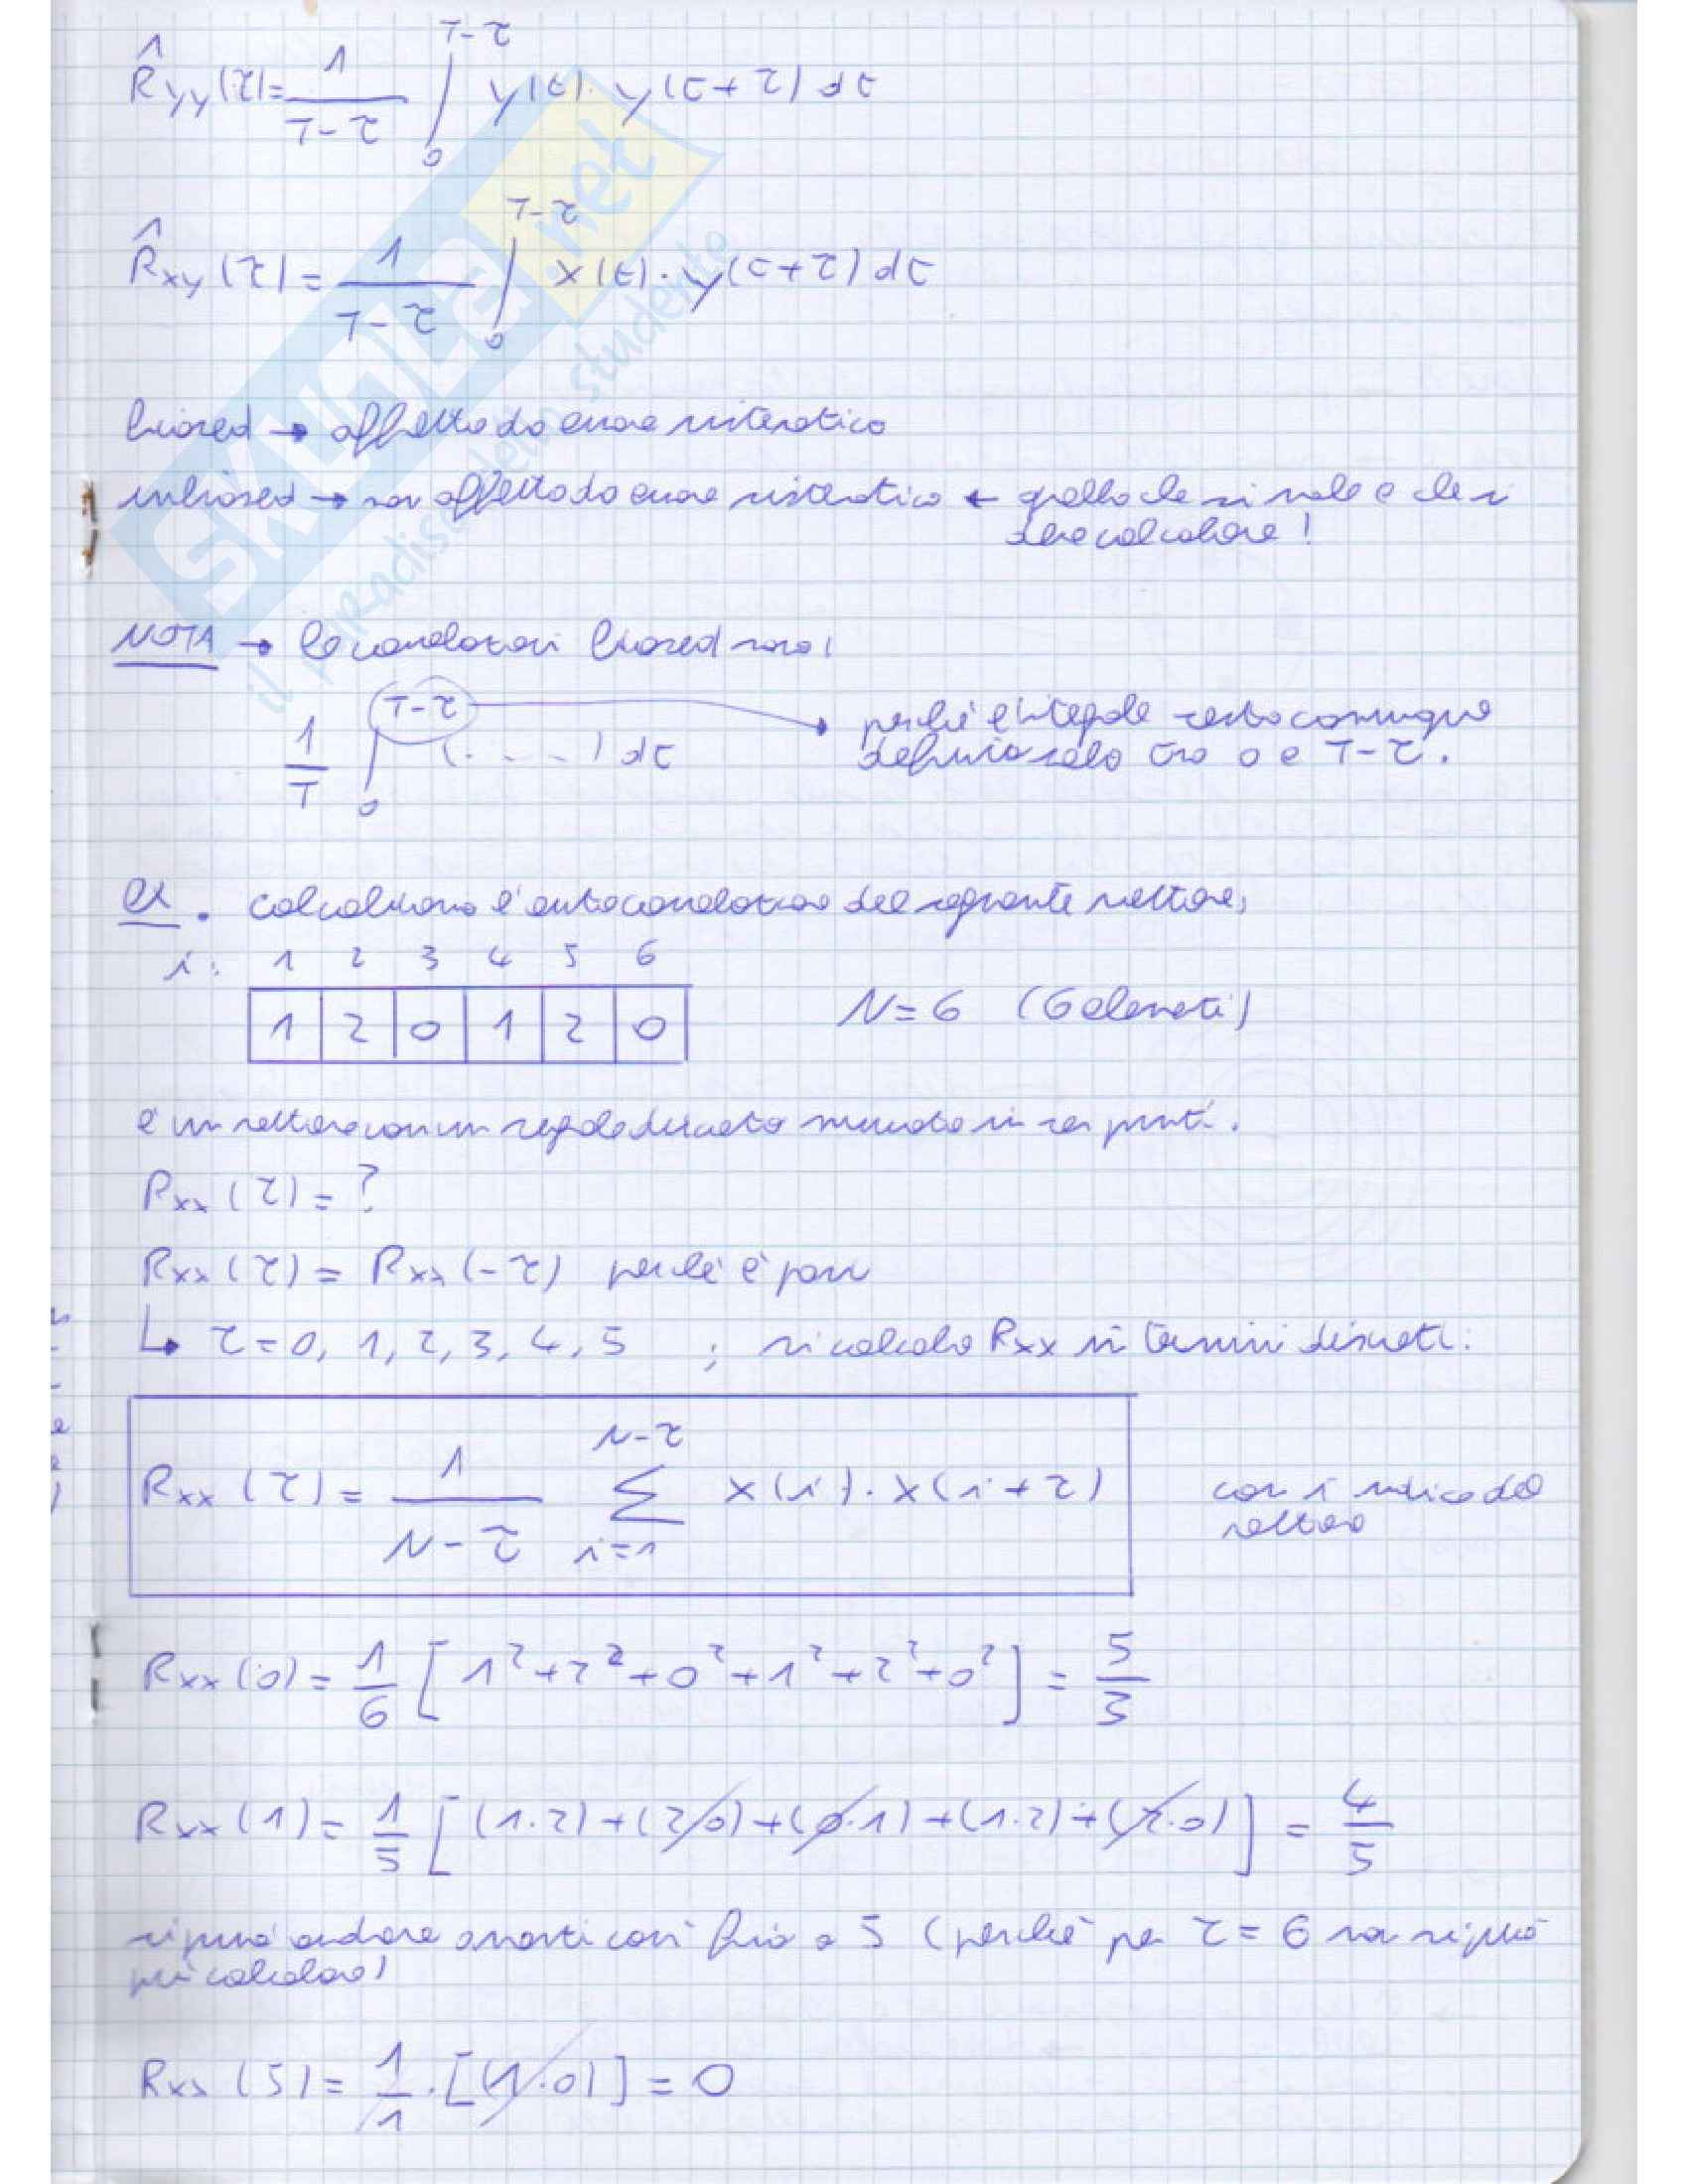 R̂yy(τ) = 1/(T-τ) ∫₀^(T-τ) y(t)·y(t+τ) dt
R̂xy(τ) = 1/(T-τ) ∫₀^(T-τ) x(t)·y(t+τ) dt
biased → affetto da errore sistematico
unbiased → non affetto da errore sistematico ← quello che si vuole e che si
deve calcolare!
NOTA → le correlazioni biased sono:
1/T ∫₀^(T-τ) (....) dt → perché l'integrale resta comunque
definito solo tra 0 e T-τ.
ex. calcoliamo l'autocorrelazione del seguente vettore:
i: 1 2 3 4 5 6
1 2 0 1 2 0 N=6 (6 elementi)
è un vettore con un segnale discreto misurato in sei punti.
Rxx(τ) = ?
Rxx(τ) = Rxx(-τ) perché è pari
↳ τ=0, 1, 2, 3, 4, 5 ; si calcola Rxx in termini discreti:
Rxx(τ) = 1/(N-τ) Σ_(i=1)^(N-τ) x(i)·x(i+τ) con i indice del
vettore
Rxx(0) = 1/6 [1²+2²+0²+1²+2²+0²] = 5/3
Rxx(1) = 1/5 [(1·2)+(2·0)+(0·1)+(1·2)+(2·0)] = 4/5
si può andare avanti così fino a 5 (perché per τ=6 non si può
più calcolare)
Rxx(5) = 1/1·[(1·0)] = 0
SKUOLA.net
il paradiso dello studente